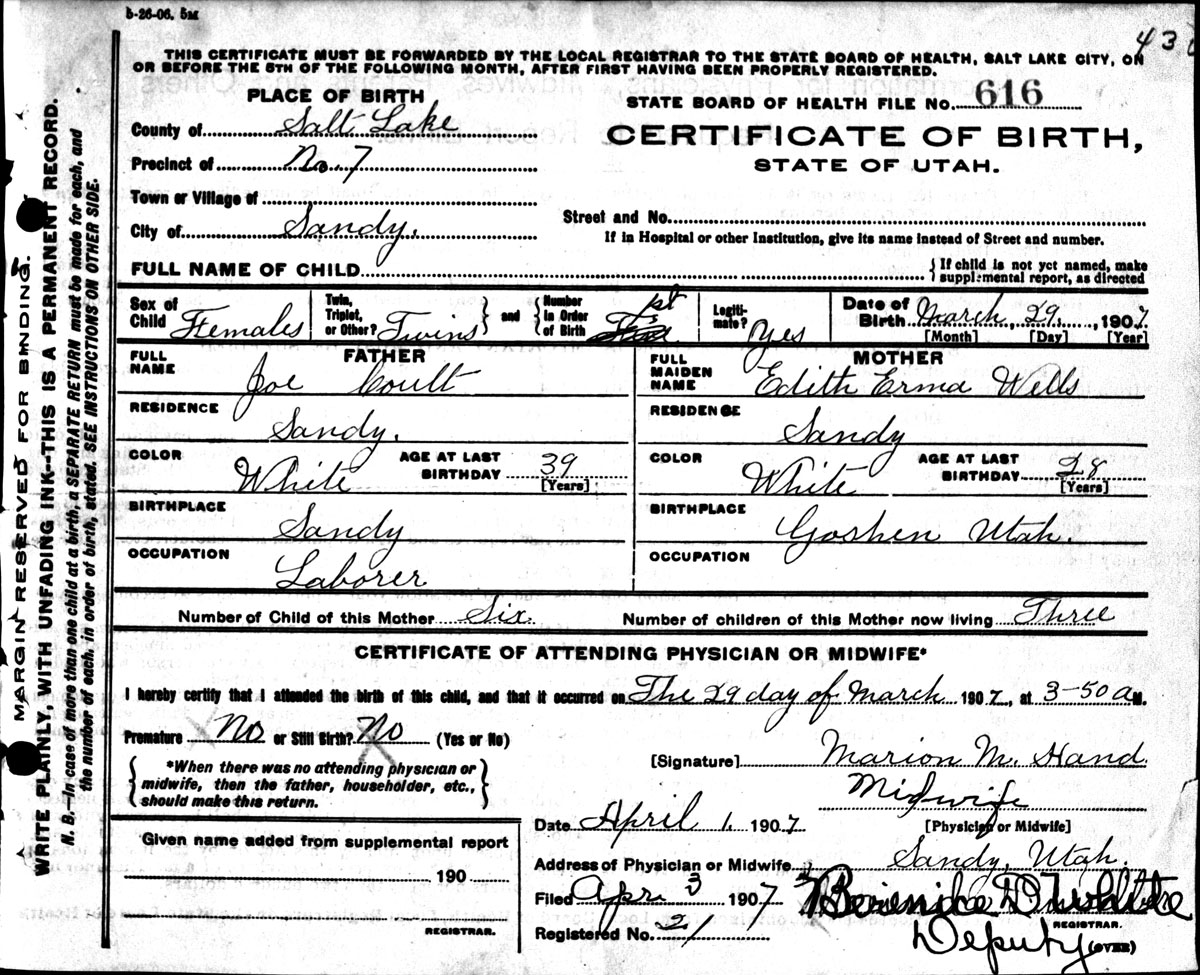 5-26-06. 5M
43
THIS CERTIFICATE MUST BE FORWARDED BY THE LOCAL REGISTRAR TO THE STATE BOARD OF HEALTH, SALT LAKE CITY, ON
OR BEFORE THE 5TH OF THE FOLLOWING MONTH, AFTER FIRST HAVING BEEN PROPERLY REGISTERED.
PLACE OF BIRTH
STATE BOARD OF HEALTH FILE No. 616
County of Salt Lake
CERTIFICATE OF BIRTH,
STATE OF UTAH.
Precinct of No. 7
Town or Village of
Street and No.
City of Sandy.
If in Hospital or other Institution, give its name instead of Street and number.
FULL NAME OF CHILD
{If child is not yet named, make
supplemental report, as directed
Sex of Child Females
Twin, Triplet, or Other? Twins
and
Number in Order of Birth 1st
Legitimate? Yes
Date of Birth March 29, 1907
[Month] [Day] [Year]
FATHER
FULL NAME Joe Coult
RESIDENCE Sandy.
COLOR White
AGE AT LAST BIRTHDAY 39
[Years]
BIRTHPLACE Sandy
OCCUPATION Laborer
MOTHER
FULL MAIDEN NAME Edith Erma Wells
RESIDENCE Sandy
COLOR White
AGE AT LAST BIRTHDAY 28
[Years]
BIRTHPLACE Goshen Utah.
OCCUPATION
Number of Child of this Mother Six.
Number of children of this Mother now living Three
CERTIFICATE OF ATTENDING PHYSICIAN OR MIDWIFE*
I hereby certify that I attended the birth of this child, and that it occurred on The 29 day of March 1907, at 3-50 a M.
Premature No or Still Birth? No (Yes or No)
{*When there was no attending physician or
midwife, then the father, householder, etc.,
should make this return.}
[Signature] Marion M. Hand
Midwife
[Physician or Midwife]
Date April 1, 1907
Address of Physician or Midwife Sandy, Utah.
Filed Apr 3 1907
REGISTRAR.
Registered No. 21
Deputy
(OVER)
Given name added from supplemental report
190
REGISTRAR.
MARGIN RESERVED FOR BINDING.
WRITE PLAINLY, WITH UNFADING INK--THIS IS A PERMANENT RECORD.
N. B.—In case of more than one child at a birth, a SEPARATE RETURN must be made for each, and
the number of each, in order of birth, stated. SEE INSTRUCTIONS ON OTHER SIDE.